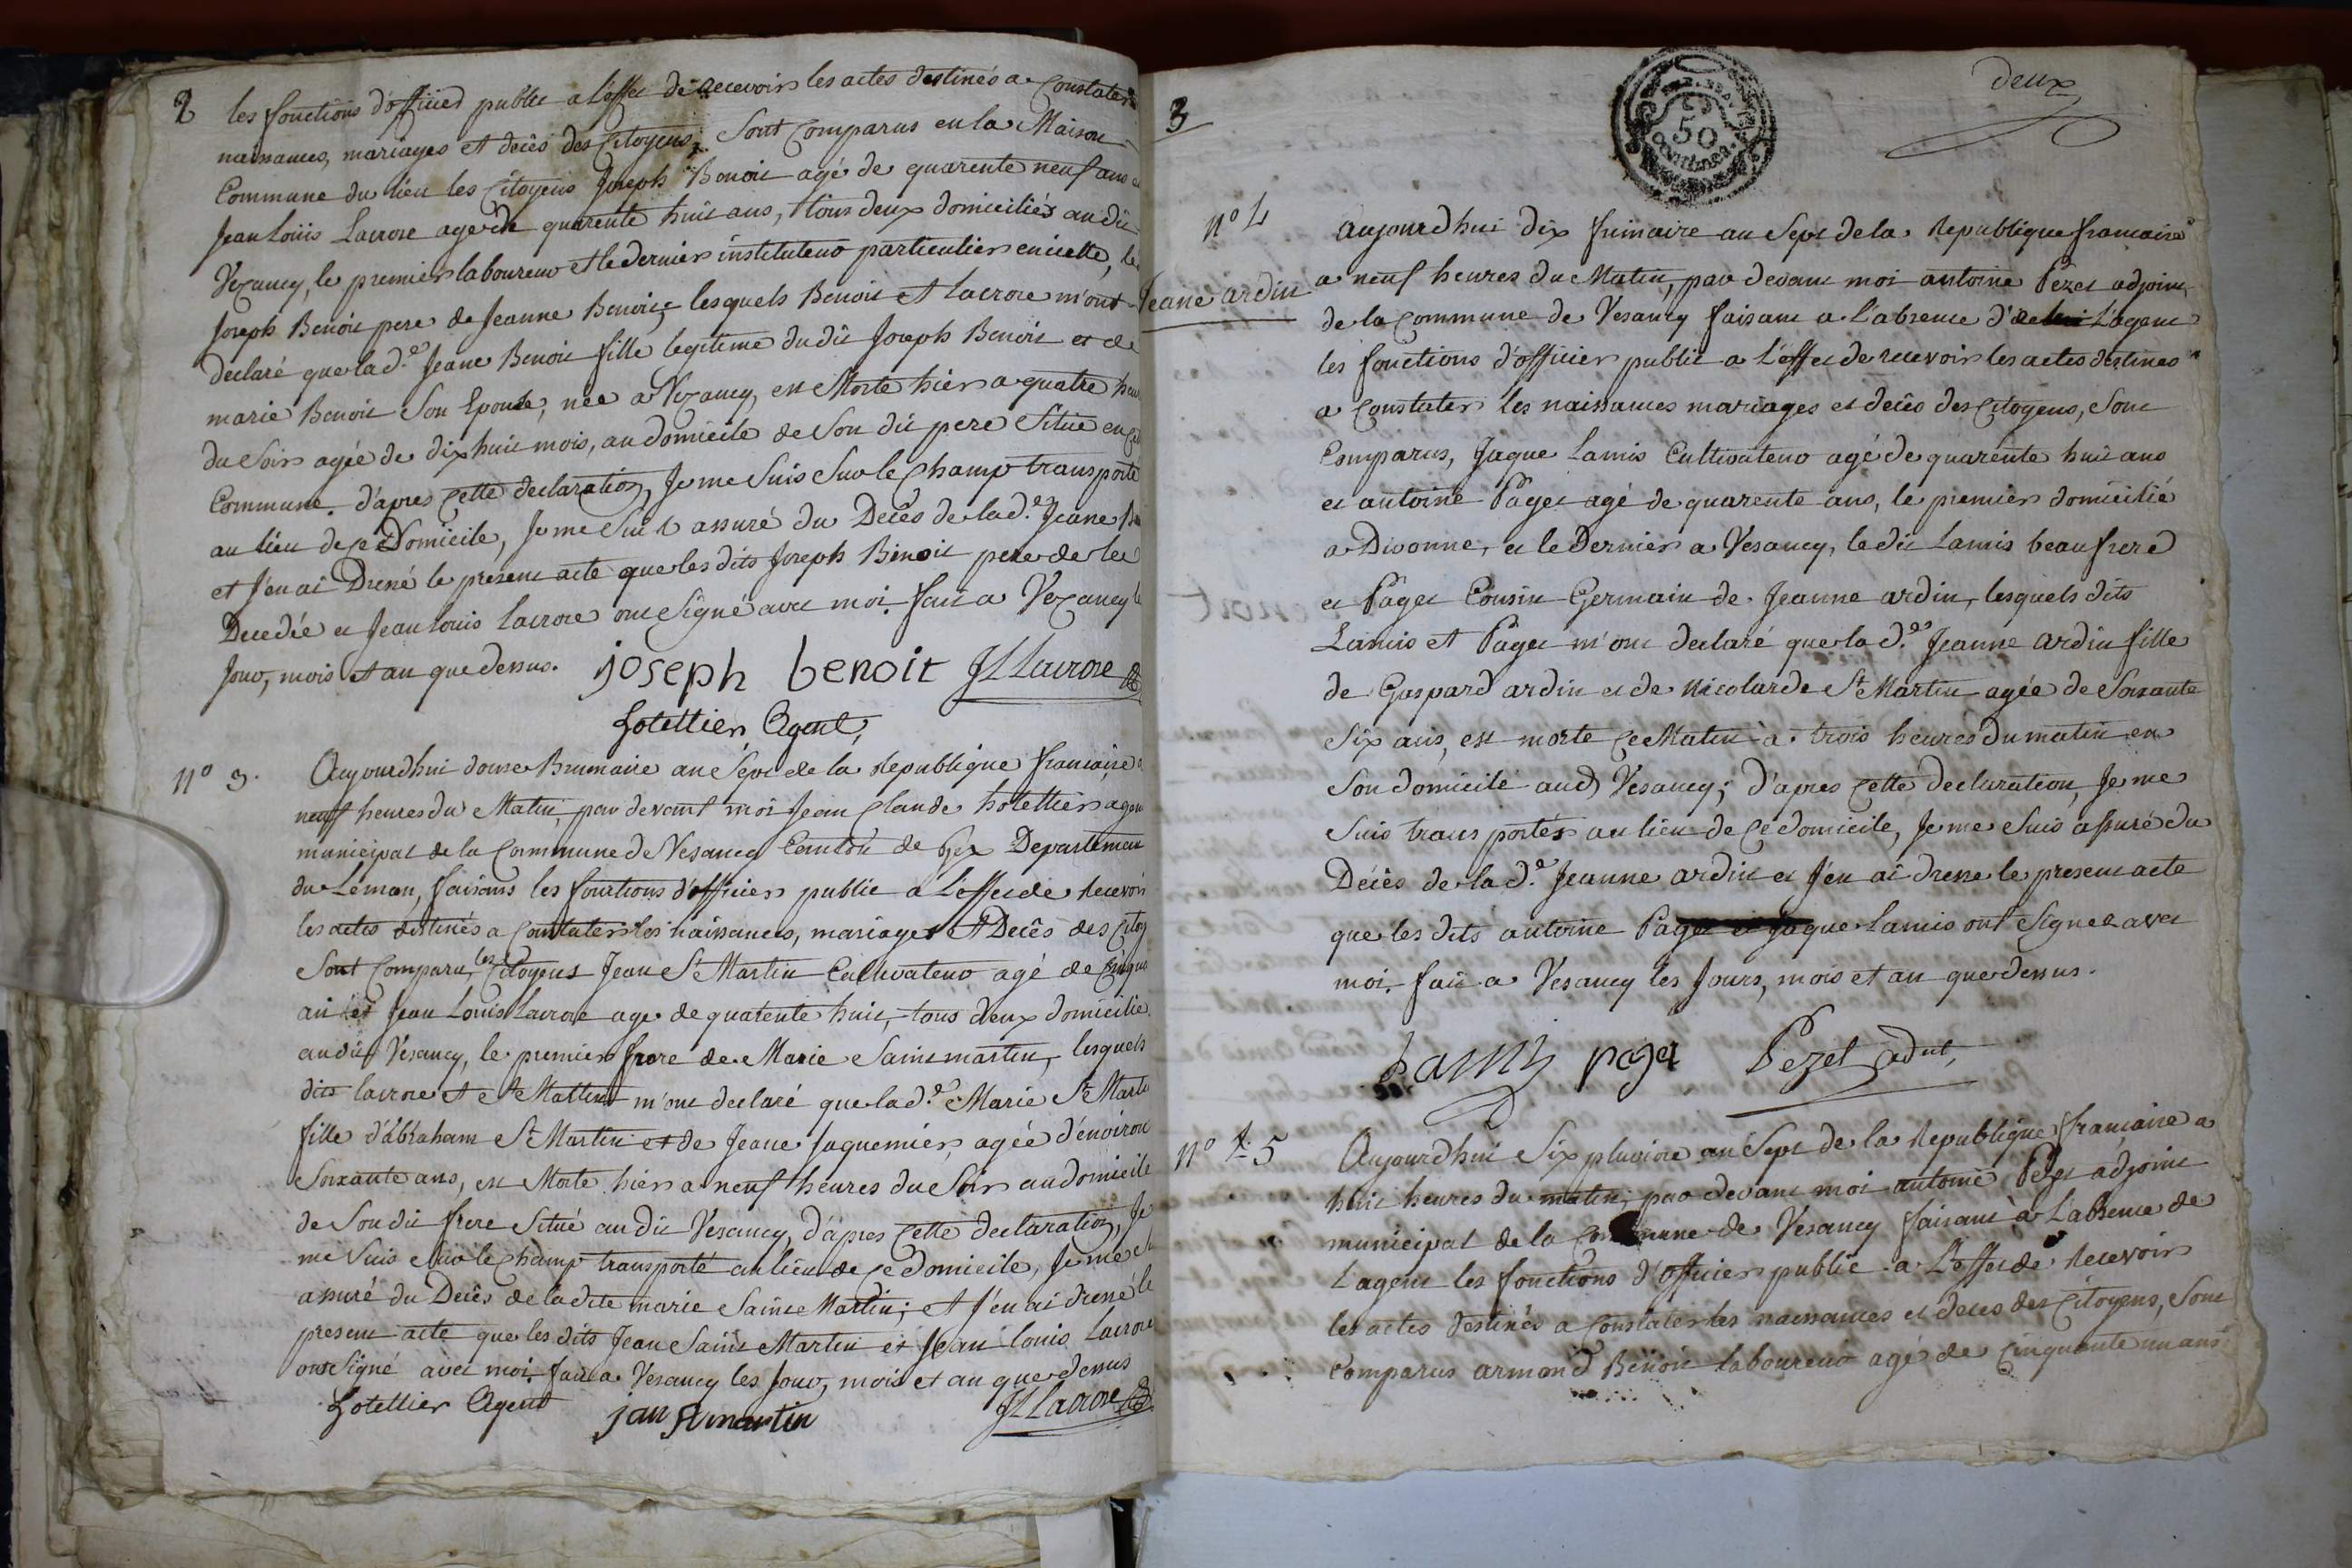 2
les fonctions d'officied public a l'effet de recevoir les actes destinés a Constater
naissances, mariages et decès des Citoyens; Sont Comparus en la Maison
Commune du lieu les Citoyens Joseph Benoit agé de quarente neuf ans
Jean Loüis Lacroze agé de quarente huit ans, tous deux domiciliés au dit
Vezancy, le premier laboureur et le dernier instituteur particulier en icelle, le
Joseph Benoit pere de Jeanne Benoit; lesquels Benoit et Lacroze m'ont
declaré que la d.e Jeane Benoit fille legitime du dit Joseph Benoit et de
marie Benoit Son Epouse, née a Vezancy, est Morte hier a quatre heu
du Soir agée de dix huit mois, au domicile de Son dit pere Situé en
Commune. d'apres Cette declaration, Je me Suis Sur le Champ transporté
au lieu de Ce Domicile, Je me Suis assuré du Decès de la d.e Jeane
et J'en ai Dressé le present acte que les dits Joseph Benoit pere de la
Decedée et Jean Louis Lacroze ont Signé avec moi. fait a Vezancy
Jour, mois et an que dessus. joseph benoit JLLacroze
hotellier Agent,
n° 3.
Aujourdhui douze Brumaire an Sept de la Republique francaise
neuf heures du Matin, par devant moi Jean Claude hotellier agen
municipal de la Commune de Vesancy Canton de Gex Departement
du Léman, faisans les fonctions d'officier public a L'effet de Recevoir
les actes destinés a Constater les naissances, mariages et Decès des Citoy
Sont Comparu les Citoyens Jean St Martin Cultivateur agé de Cinqua
an et Jean Louis Lacroze age de quarente huit, tous deux domicilie
au dit Vésancy, le premier frere de Marie Saint martin, lesquels
dits lacroze et St Martin m'ont declaré que la d.e Marie St Marti
fille d'Abraham St Martin et de Jeane Jaquemier, agée d'environ
Soixante ans, est Morte hier a neuf heures du Soir au domicile
de Son dit frere Situé au dit Vesancy, d'apres Cette declaration, Je
me Suis Sur le Champ transporté au lieu de Ce domicile, Je me
assuré du Decès de la dite marie Saint Martin; et J'en ai dressé le
present acte que les dits Jean Saint Martin et Jean louis Lacroze
ont Signé avec moi. fait a Vesancy les Jour, mois et an que dessus
hotellier Agent jan st martin JLLacroze
3
50
centimes
deux
n° 4
Jeane ardin
aujourdhui dix frimaire an Sept de la Republique francaise
a neuf heures du Matin, par devant moi antoine Pezet adjoint
de la Commune de Vesancy faisant a L'absence d' L'agent
les fonctions d'officier public a L'effet de recevoir les actes destinés
a Constater les naissances mariages et decès des Citoyens, Sont
Comparus, Jaque Lamis Cultivateur agé de quarente huit ans
et antoine Paget agé de quarente ans, le premier domicilié
a Divonne, et le Dernier a Vesancy, le dit Lamis beau frere
et Paget Cousin Germain de Jeanne ardin, lesquels dits
Lamis et Paget m'ont declaré que la d.e Jeanne ardin fille
de Gaspard ardin et de Nicolarde St Martin agée de Soixante
Six ans, est morte Ce Matin à trois heures du matin en
Son domicile aud Vesancy; d'apres Cette declaration, Je me
Suis trans portés au lieu de Ce domicile, Je me Suis assuré du
Décès de la d.e Jeanne ardin et J'en ai dressé le present acte
que les dits antoine Paget et Jaque Lamis ont Signez avec
moi. fait a Vesancy les Jours, mois et an que dessus.
Lamis paget Pezet adnt,
n° 5
Aujourdhui Six pluviose an Sept de la Republique française a
huit heures du matin, par devant moi antoine Pezet adjoint
municipal de la Commune de Vésancy faisant à L'absence de
L'agent les fonctions d'officier public a L'effet de Recevoir
les actes destinés a Constater les naissances et deces des Citoyens, Sont
Comparus armand Benoit laboureur agé de Cinquante un ans